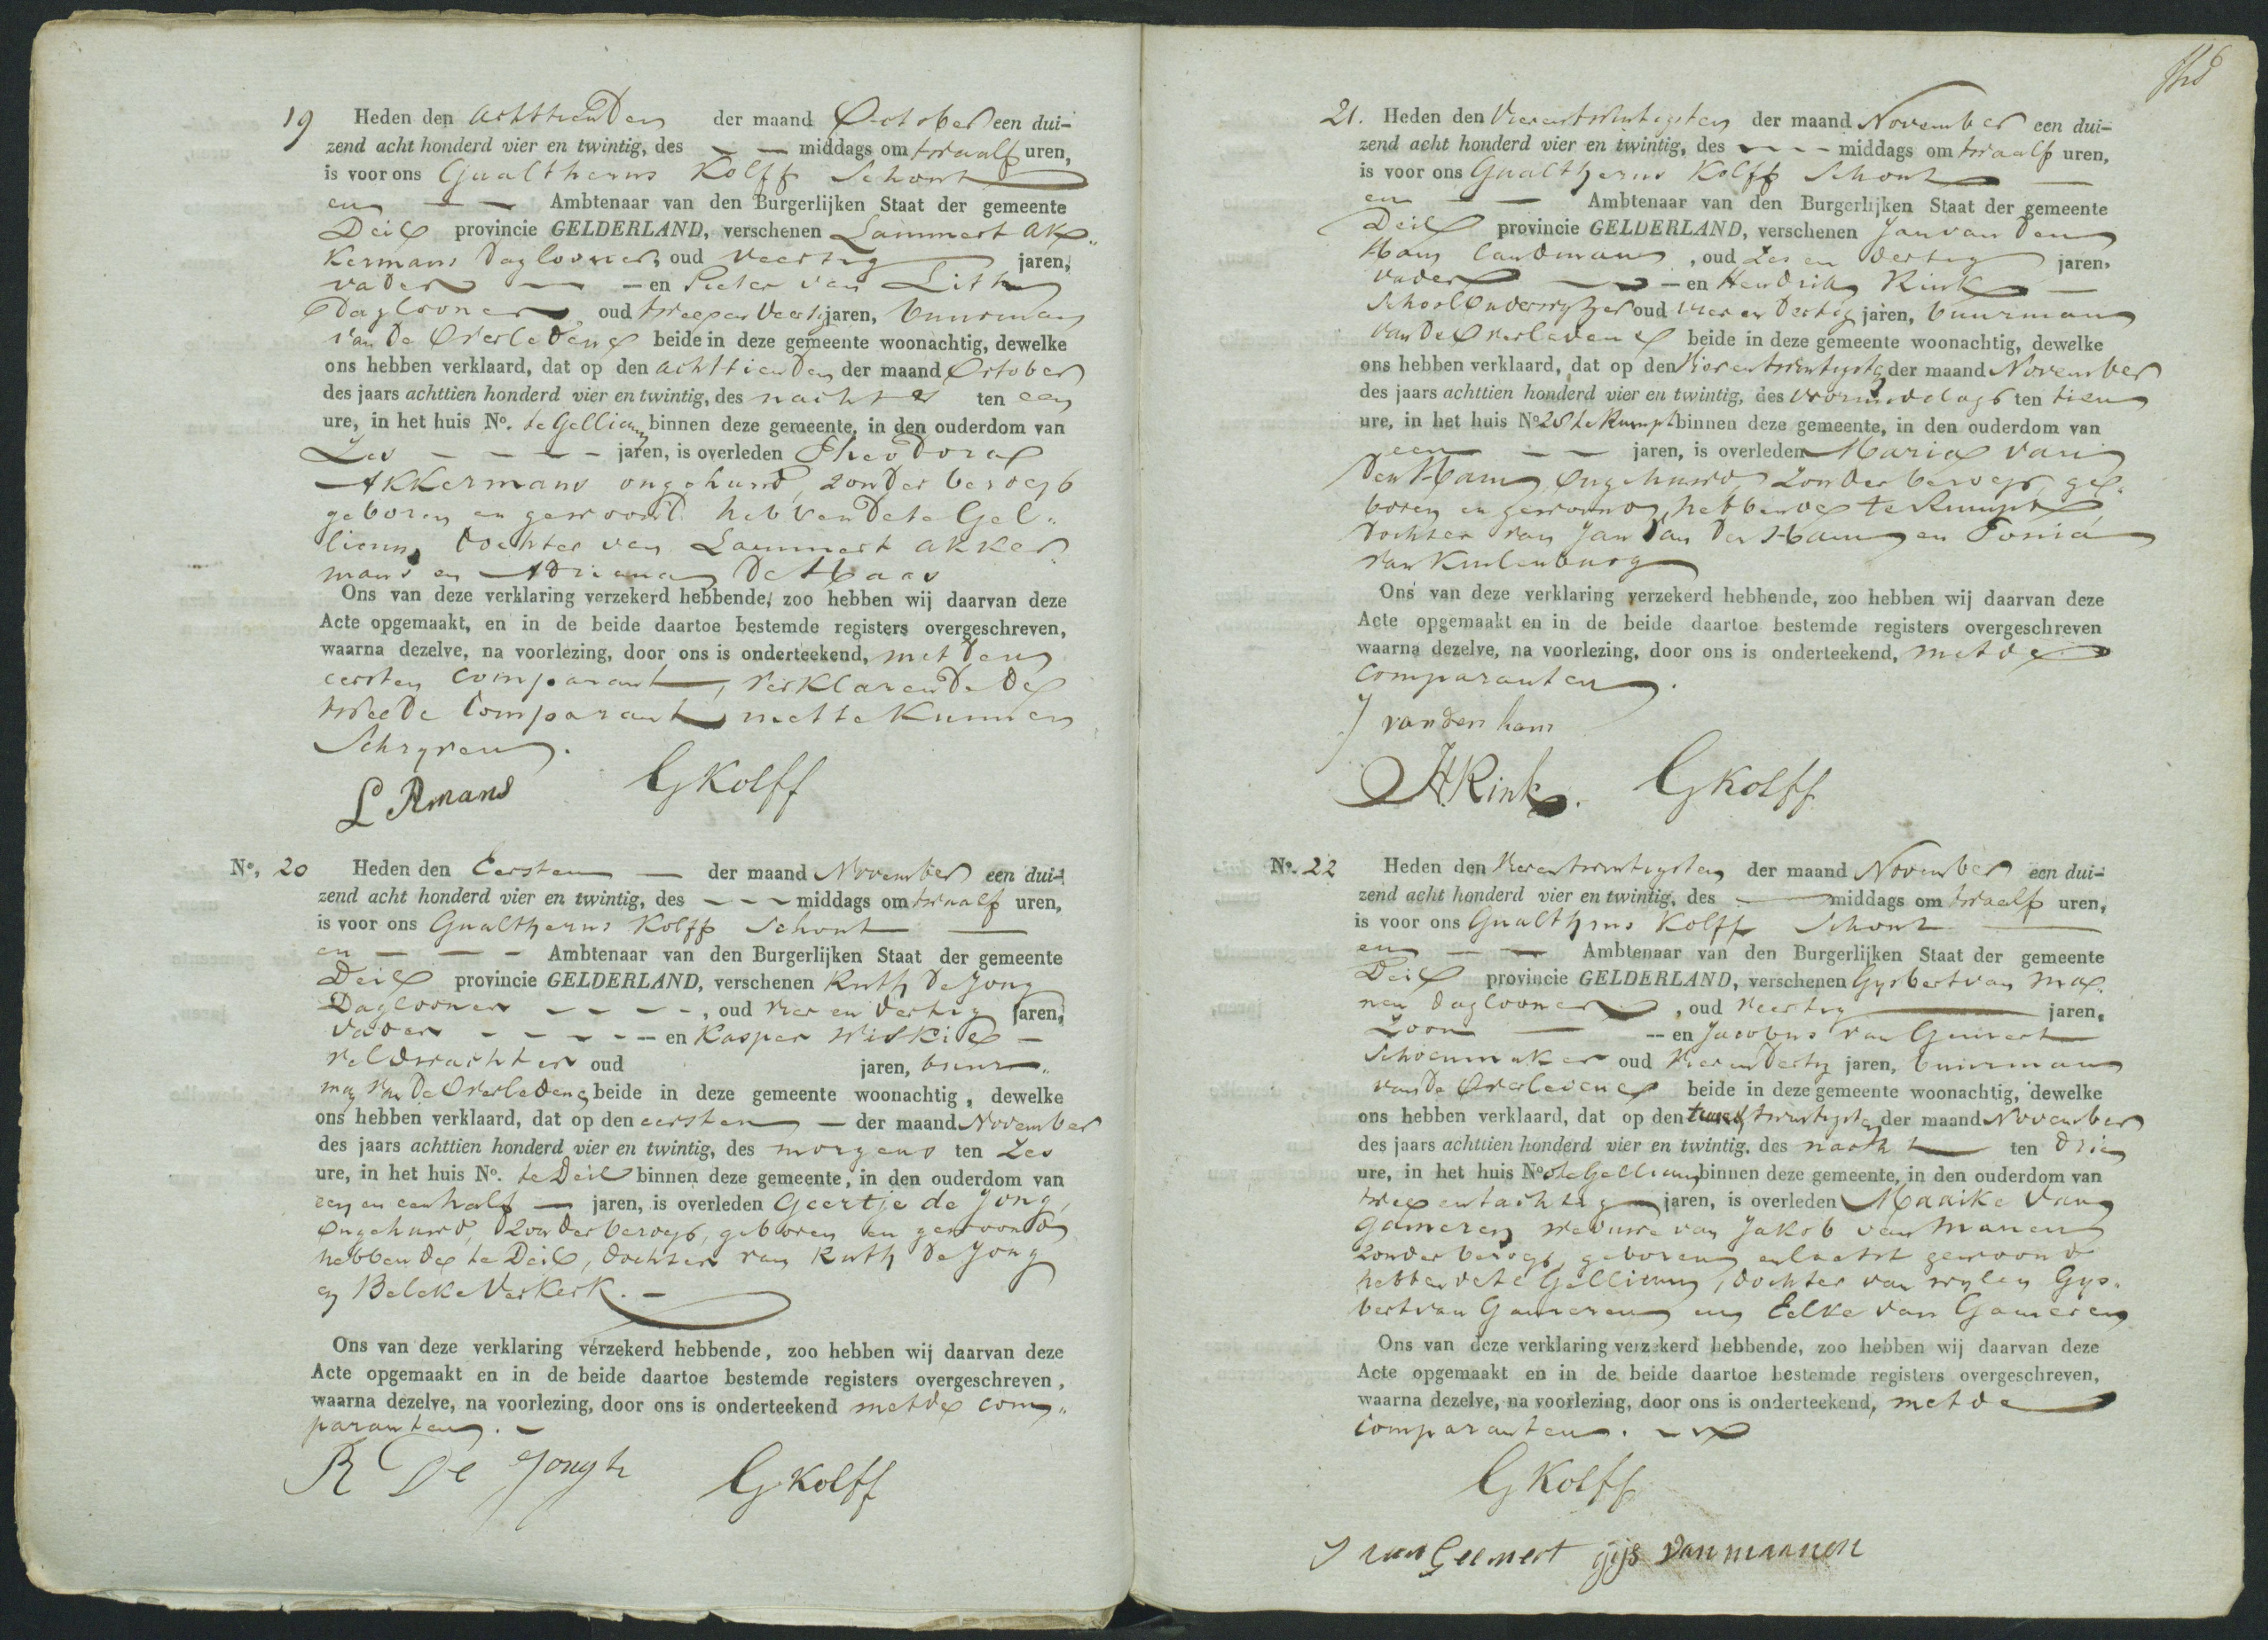 19 Heden den achttienden der maand October een dui-
zend acht honderd vier en twintig, des — — middags om twaalf uren,
is voor ons Gualtherus Kolff Schout
en — — Ambtenaar van den Burgerlijken Staat der gemeente
Deil provincie GELDERLAND, verschenen Lammert Ak„
kermans Daglooner, oud veertig jaren,
vader — — en Pieter van Lith
Daglooner oud twee en veertig jaren, buurman
van de Overledene beide in deze gemeente woonachtig, dewelke
ons hebben verklaard, dat op den achttienden der maand October
des jaars achttien honderd vier en twintig, des nachts ten een
ure, in het huis No. te Gellicum binnen deze gemeente, in den ouderdom van
Zes — — — — jaren, is overleden Theodora
Akkermans ongehuwd, zonder beroep
geboren en gewoond hebbende te Gel„
licum, dochter van Lammert Akker
mans en Adriana De Haas
Ons van deze verklaring verzekerd hebbende, zoo hebben wij daarvan deze
Acte opgemaakt, en in de beide daartoe bestemde registers overgeschreven,
waarna dezelve, na voorlezing, door ons is onderteekend, met den
eersten Comparant, verklarende de
tweede Comparant niet te kunnen
Schryven.
L Amans GKolff
No. 20 Heden den Eersten — der maand November een dui-
zend acht honderd vier en twintig, des — — — middags om twaalf uren,
is voor ons Gualtherus Kolff Schout —
en — — — Ambtenaar van den Burgerlijken Staat der gemeente
Deil provincie GELDERLAND, verschenen Ruth De Jong
Daglooner — — — —, oud vier en dertig jaren,
vader — — — — en Kasper Miskie —
veldwachter oud jaren, buur„
man van de Overledene beide in deze gemeente woonachtig, dewelke
ons hebben verklaard, dat op den eersten — der maand November
des jaars achttien honderd vier en twintig, des morgens ten Zes
ure, in het huis No. te Deil binnen deze gemeente, in den ouderdom van
een en een half — jaren, is overleden Geertje de Jong,
Ongehuwd, zonder beroep, geboren en gewoond
hebbende te Deil, dochter van Ruth De Jong
en Beleke Verkerk. —
Ons van deze verklaring verzekerd hebbende, zoo hebben wij daarvan deze
Acte opgemaakt en in de beide daartoe bestemde registers overgeschreven,
waarna dezelve, na voorlezing, door ons is onderteekend met de com„
paranten. —
R De Jongh GKolff
21. Heden den Vierentwintigsten der maand November een dui-
zend acht honderd vier en twintig, des — — — middags om twaalf uren,
is voor ons Gualtherus Kolff Schout —
en — — Ambtenaar van den Burgerlijken Staat der gemeente
Deil provincie GELDERLAND, verschenen Jan van Den
Ham Landman, oud Zes en dertig jaren,
vader — — en Hendrik Rink —
School Onderwyzer oud vier en dertig jaren, buurman
van de Overledene beide in deze gemeente woonachtig, dewelke
ons hebben verklaard, dat op den Vier en twintigste der maand November
des jaars achttien honderd vier en twintig, des voormiddags ten tien
ure, in het huis No 28 te Rumpt binnen deze gemeente, in den ouderdom van
een — — jaren, is overleden Maria van
Den Ham, Ongehuwd, zonder beroep, ge„
boren en gewoond hebbende te Rumpt,
dochter van Jan Van Den Ham en Tonia
van Kuilenburg
Ons van deze verklaring verzekerd hebbende, zoo hebben wij daarvan deze
Acte opgemaakt en in de beide daartoe bestemde registers overgeschreven
waarna dezelve, na voorlezing, door ons is onderteekend, met de
Comparanten.
J van den ham
H Rink. GKolff
No. 22 Heden den Vierentwintigsten der maand November een dui-
zend acht honderd vier en twintig, des — middags om twaalf uren,
is voor ons Gualtherus Kolff Schout —
en — — Ambtenaar van den Burgerlijken Staat der gemeente
Deil provincie GELDERLAND, verschenen Gysbert van Ma„
nen daglooner, oud veertig jaren,
Zoon — — en Jacobus van Gement
Schoenmaker oud Vier en Dertig jaren, buurman
van de Overledene beide in deze gemeente woonachtig, dewelke
ons hebben verklaard, dat op den twintigste der maand November
des jaars achttien honderd vier en twintig, des nachts ten drie
ure, in het huis No te Gellicum binnen deze gemeente, in den ouderdom van
twee en tachtig — jaren, is overleden Maaike Van
Gameren weduwe van Jakob van Manen
zonder beroep, geboren en laatst gewoond
hebbende te Gellicum, dochter van wylen Gys„
bert van Gameren en Eelke van Gameren
Ons van deze verklaring verzekerd hebbende, zoo hebben wij daarvan deze
Acte opgemaakt en in de beide daartoe bestemde registers overgeschreven,
waarna dezelve, na voorlezing, door ons is onderteekend, met de
Comparanten. —
GKolff
J van Geement gijs van maanen